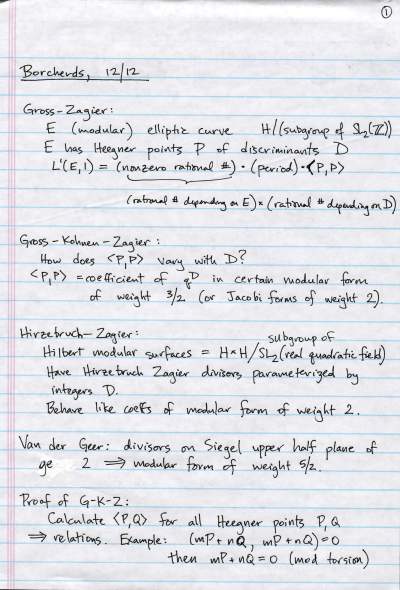 ①
Borcherds, 12/12
Gross-Zagier:
E (modular) elliptic curve H/(subgroup of SL₂(ℤ))
E has Heegner points P of discriminants D
L'(E,1) = (nonzero rational #) · (period) · ⟨P,P⟩
(rational # depending on E) × (rational # depending on D)
Gross-Kohnen-Zagier:
How does ⟨P,P⟩ vary with D?
⟨P,P⟩ = coefficient of q^D in certain modular form
of weight 3/2 (or Jacobi forms of weight 2).
Hirzebruch-Zagier:
subgroup of
Hilbert modular surfaces = H×H/SL₂(real quadratic field)
Have Hirzebruch Zagier divisors parameterized by
integers D.
Behave like coeffs of modular form of weight 2.
Van der Geer: divisors on Siegel upper half plane of
ge 2 ⟹ modular form of weight 5/2.
Proof of G-K-Z:
Calculate ⟨P,Q⟩ for all Heegner points P, Q
⟹ relations. Example: (mP+nQ, mP+nQ)=0
then mP+nQ=0 (mod torsion)